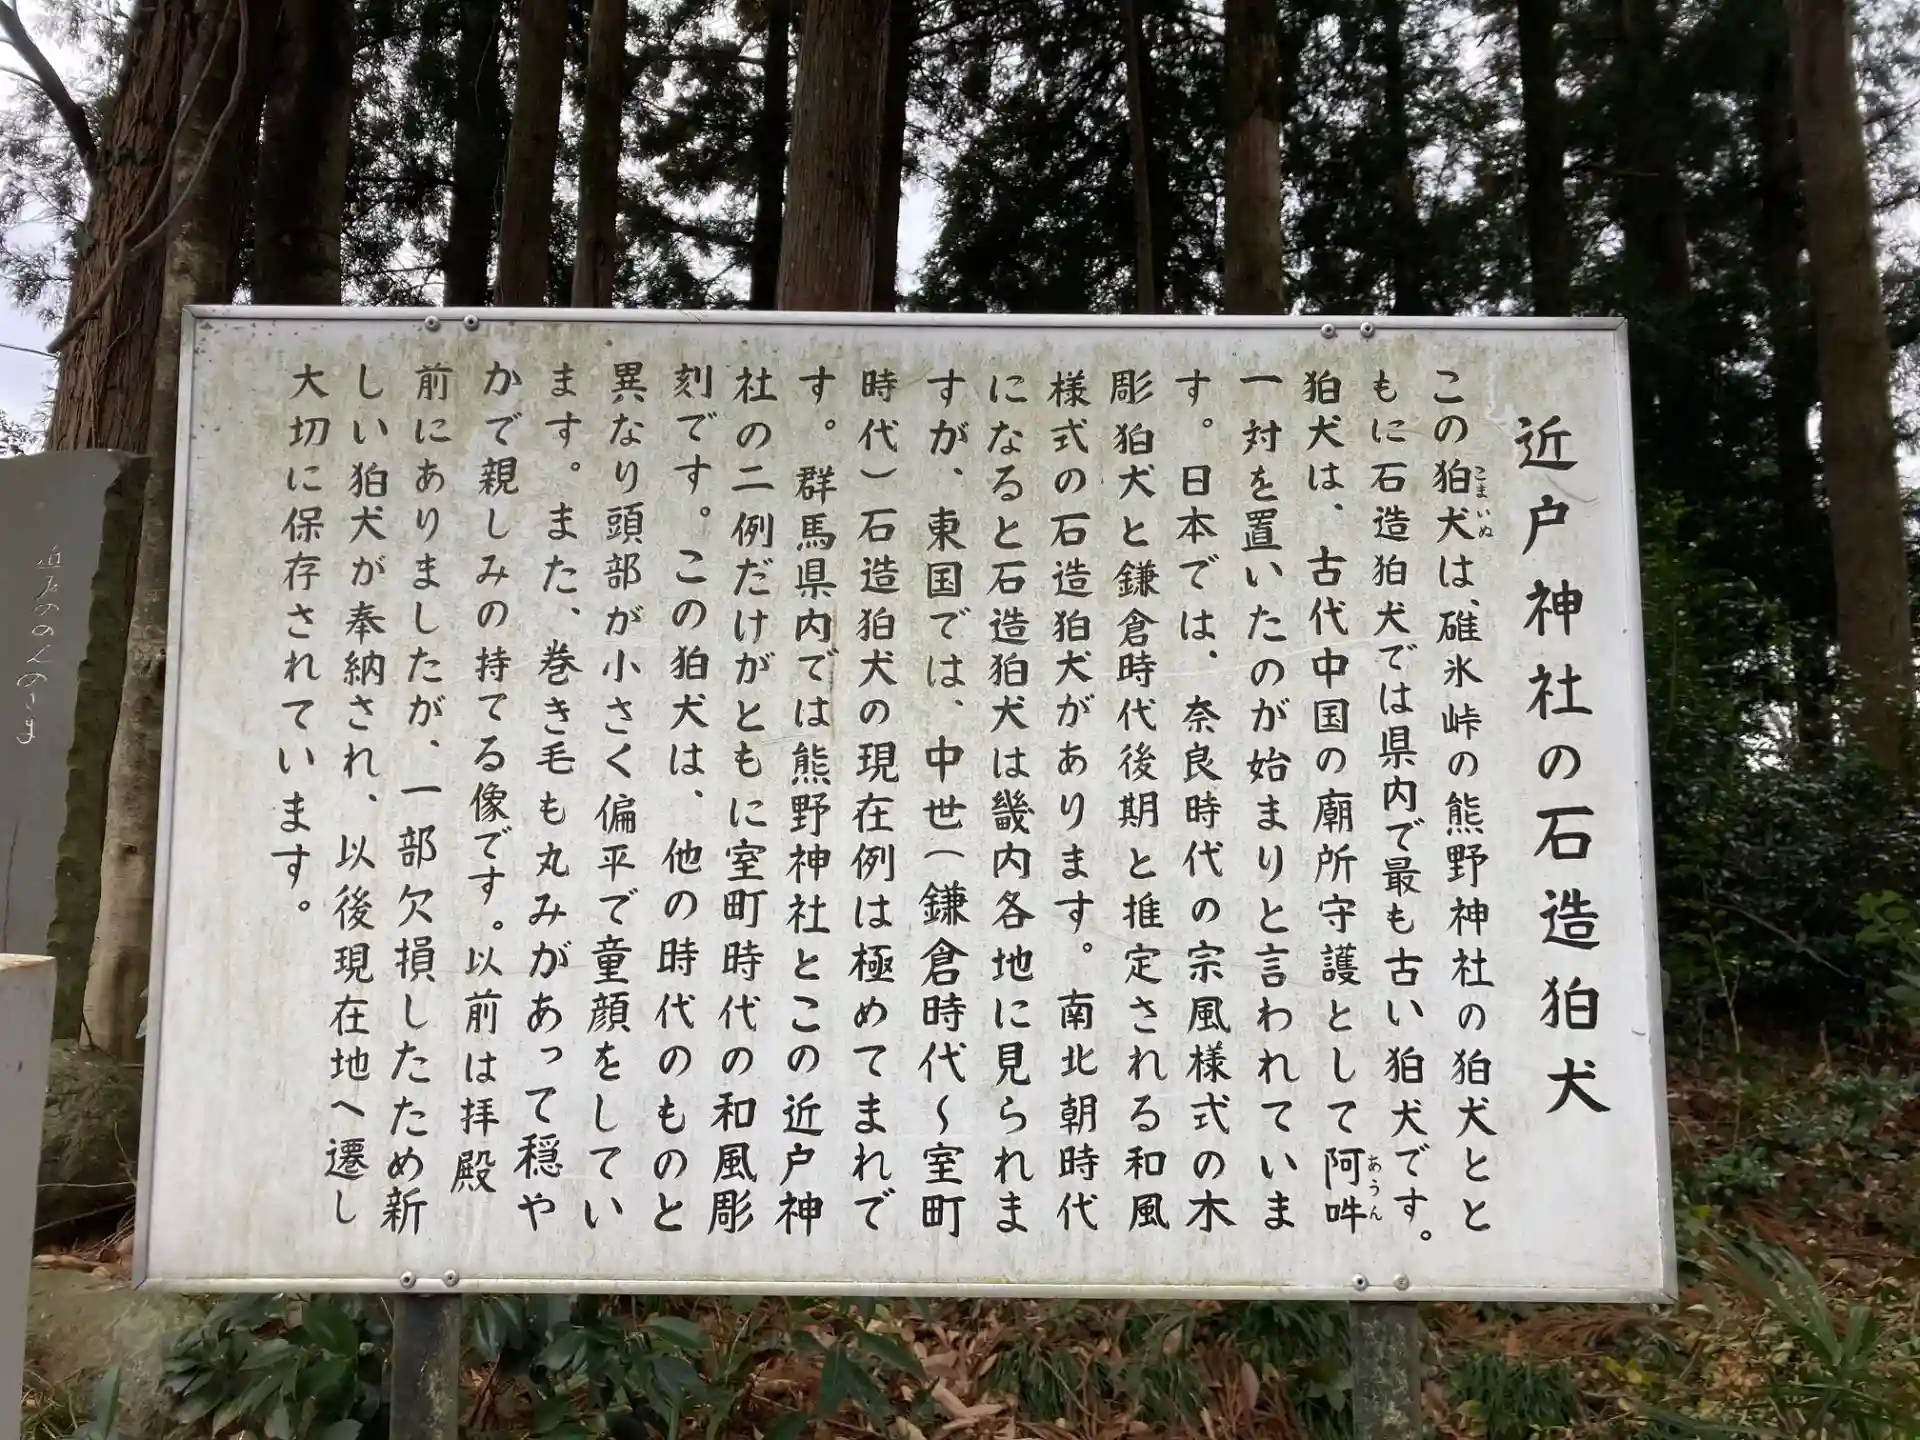 近戸神社の石造狛犬
この狛犬は、碓氷峠の熊野神社の狛犬とと
こまいぬ
もに石造狛犬では県内で最も古い狛犬です。
狛犬は、古代中国の廟所守護として阿吽
あうん
一対を置いたのが始まりと言われていま
す。日本では、奈良時代の宗風様式の木
彫狛犬と鎌倉時代後期と推定される和風
様式の石造狛犬があります。南北朝時代
になると石造狛犬は畿内各地に見られま
すが、東国では、中世(鎌倉時代~室町
時代)石造狛犬の現在例は極めてまれで
す。群馬県内では熊野神社とこの近戸神
社の二例だけがともに室町時代の和風彫
刻です。この狛犬は、他の時代のものと
異なり頭部が小さく偏平で童顔をしてい
ます。また、巻き毛も丸みがあって穏や
かで親しみの持てる像です。以前は拝殿
前にありましたが、一部欠損したため新
しい狛犬が奉納され、以後現在地へ遷し
大切に保存されています。